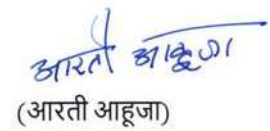 आरती आहूजा
(आरती आहूजा)